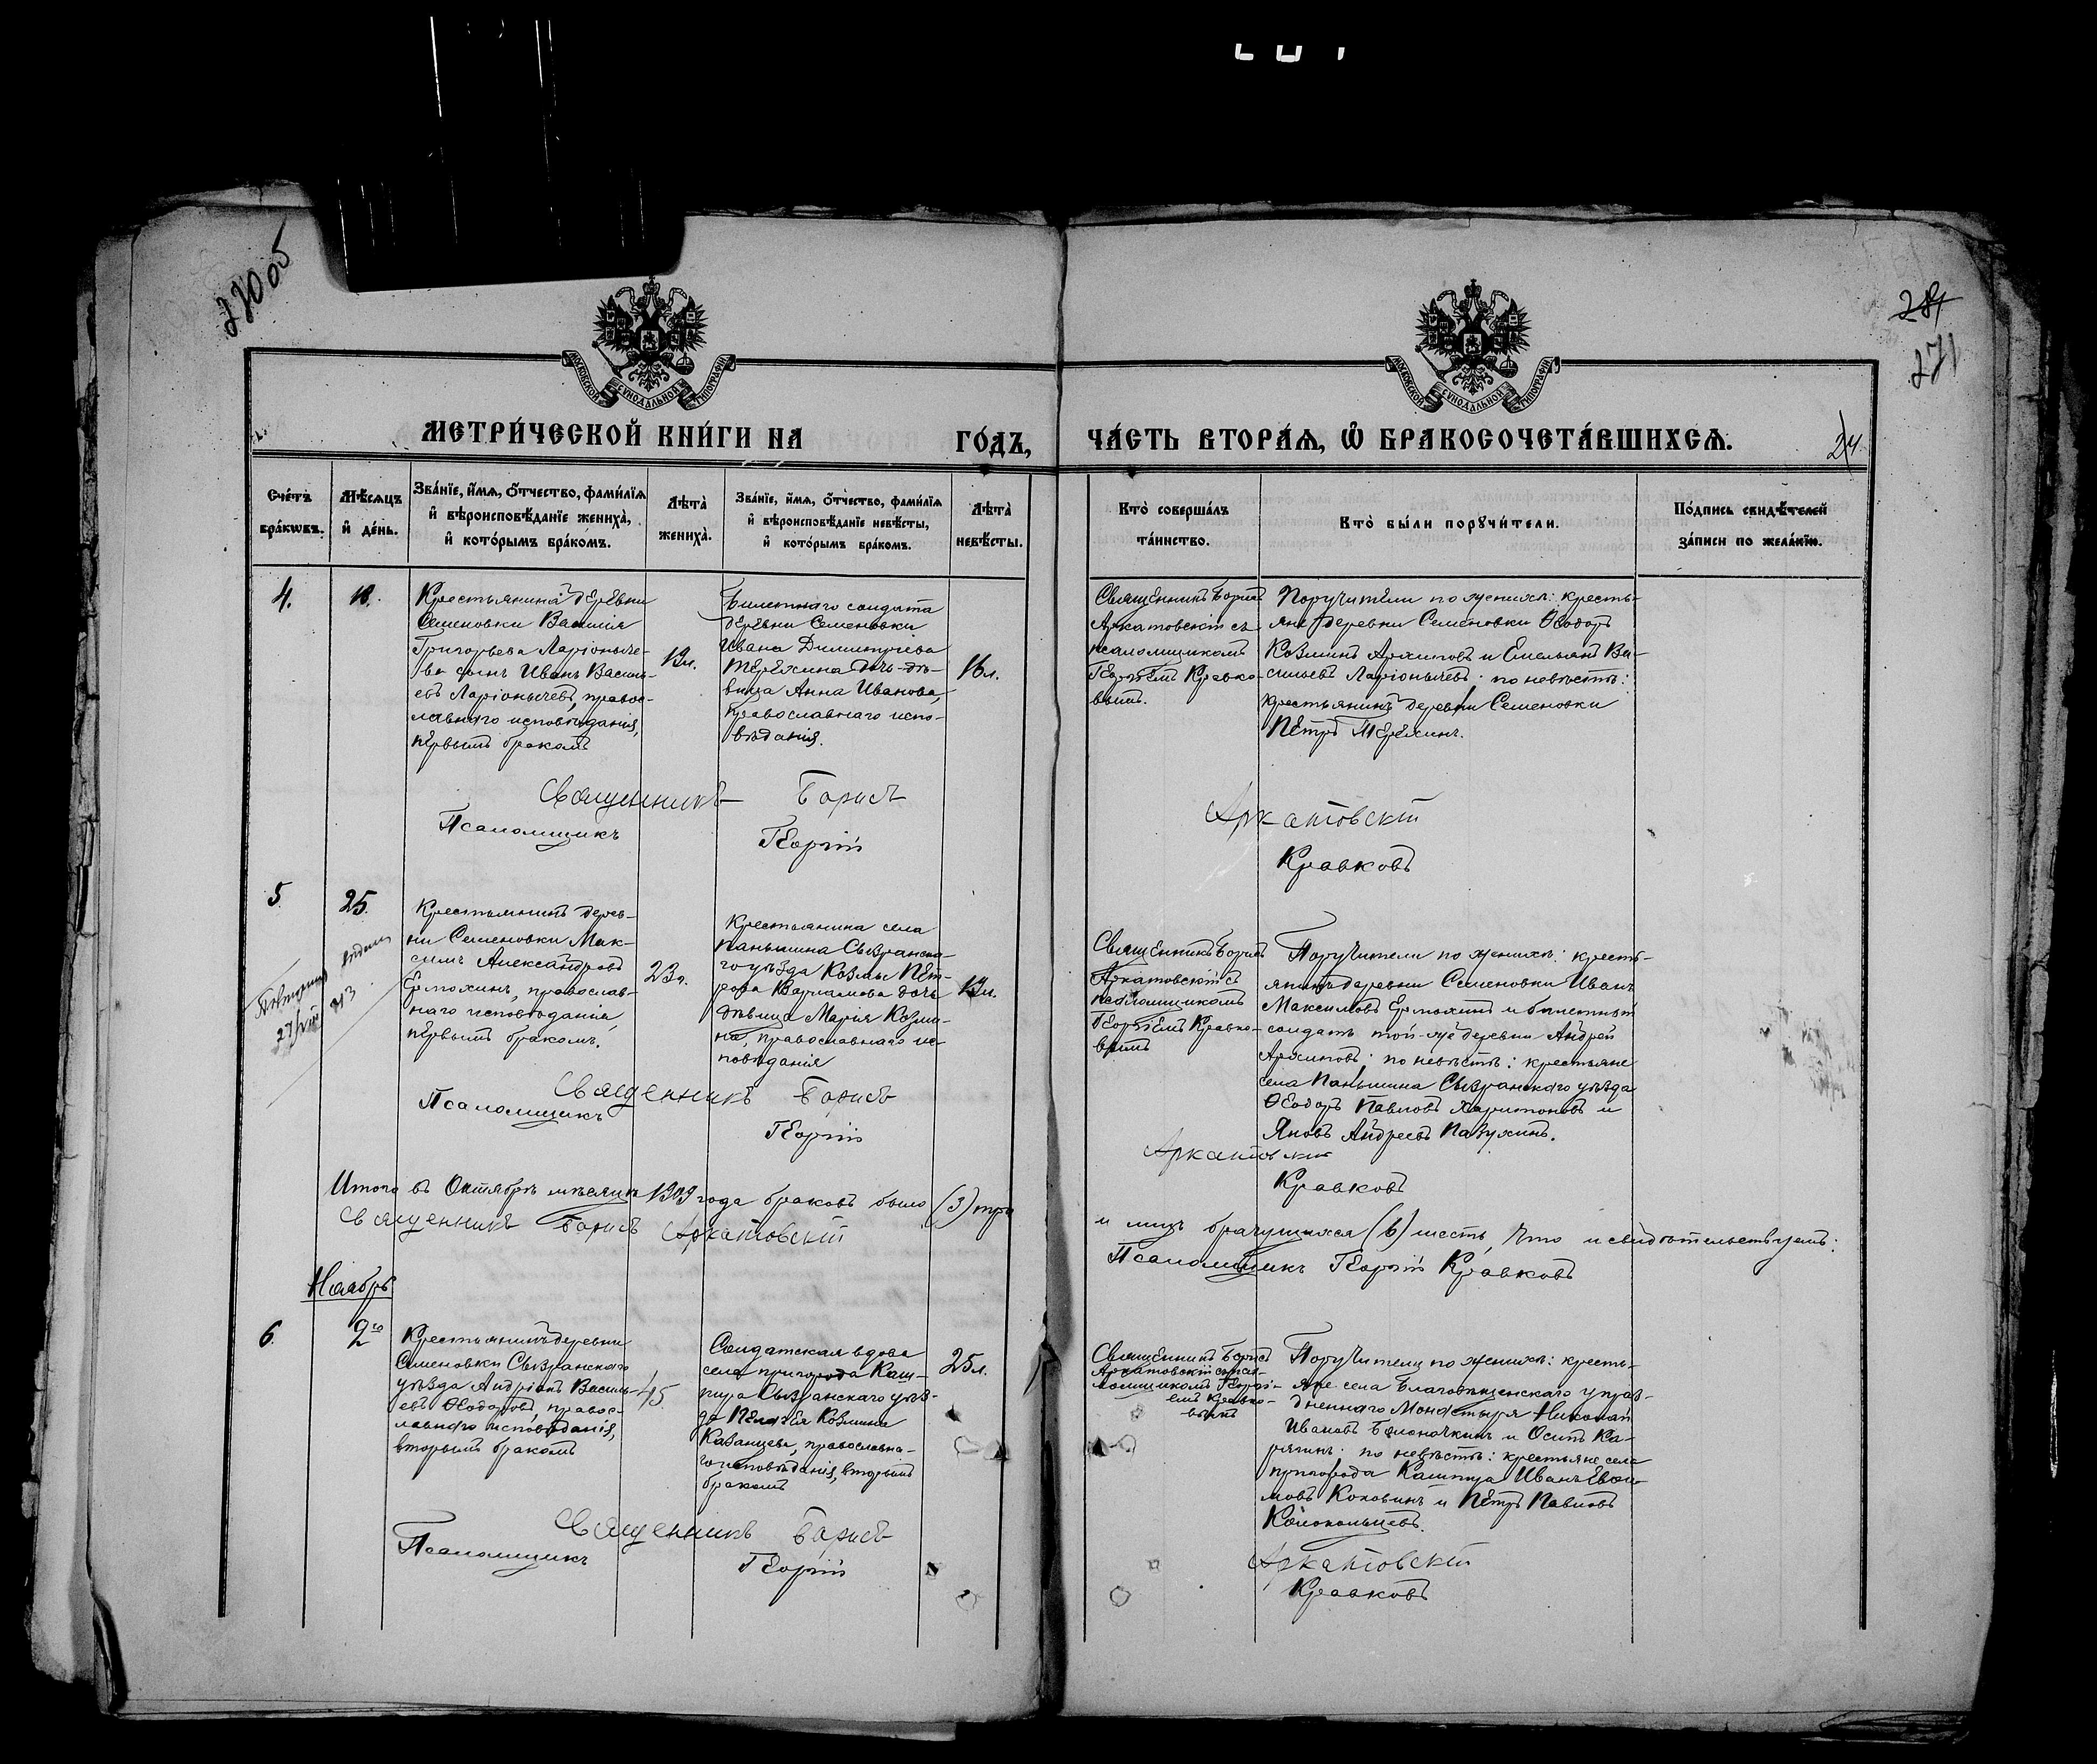 270 об
281
271
МОСКОВСКОЙ СУНОДАЛЬНОЙ ТИПОГРАФІИ
МОСКОВСКОЙ СУНОДАЛЬНОЙ ТИПОГРАФІИ
МЕТРИ́ЧЕСКОЙ КНИ́ГИ НА ГО́ДЪ,
ЧА́СТЬ ВТОРА́Ѧ, Ѡ БРАКОСОЧЕТА́ВШИХСѦ.
24
Сче́тъ
бра́кѡвъ.
Мѣ́сѧцъ
и҆ де́нь.
Зва́нїе, и҆́мѧ, о҆́тчество, фами́лїѧ
и҆ вѣроисповѣ́данїе жениха̀,
и҆ кото́рымъ бра́комъ.
Лѣ́та
жениха̀.
Зва́нїе, и҆́мѧ, о҆́тчество, фами́лїѧ
и҆ вѣроисповѣ́данїе невѣ́сты,
и҆ кото́рымъ бра́комъ.
Лѣ́та
невѣ́сты.
Кто̀ соверша́лъ
та́инство.
Кто̀ бы́ли порꙋчи́тели.
По́дпись свидѣ́телей
за́писи по жела́нїю.
4.
18.
Крестьянина деревни
Семеновки Василія
Григорьева Ларіоныче-
ва сынъ Иванъ Василь-
евъ Ларіонычевъ, правос-
лавнаго исповѣданія,
первымъ бракомъ
Билетнаго солдата
деревни Семеновки
Ивана Димитріева
Терехина дочь дѣ-
вица Анна Иванова,
православнаго испо-
вѣданія.
16л.
Священникъ Борисъ
Аркатовскій съ
псаломщикомъ
Георгіемъ Кравко-
вымъ.
Поручители по женихѣ: кресть-
яне деревни Семеновки Ѳеодоръ
Козминъ Архиповъ и Емельянъ Ва-
сильевъ Ларіонычевъ; по невѣстѣ:
крестьянинъ деревни Семеновки
Петръ Терехинъ.
Священникъ Борисъ Аркатовскій
Псаломщикъ Георгій Кравковъ
5.
25.
27/VIII 913
Крестьянинъ дерев-
ни Семеновки Мак-
симъ Александровъ
Ермохинъ, православ-
наго исповѣданія,
первымъ бракомъ.
23л.
Крестьянина села
Паньшина Сызранска-
го уѣзда Козмы Пет-
рова Варламова дочь
дѣвица Марія Козми-
на, православнаго ис-
повѣданія
Священникъ Борисъ
Аркатовскій съ
псаломщикомъ
Георгіемъ Кравко-
вымъ
Поручители по женихѣ: кресть-
янинъ деревни Семеновки Иванъ
Максимовъ Ермохинъ и билетный
солдатъ той-же деревни Андрей
Архиповъ; по невѣстѣ: крестьяне
села Паньшина Сызранскаго уѣзда
Ѳеодоръ Павловъ Харитоновъ и
Яковъ Андреевъ Пазухинъ.
Священникъ Борисъ Аркатовскій
Псаломщикъ Георгій Кравковъ
Итого въ Октябрѣ мѣсяцѣ 1909 года браковъ было (3) три
и лицъ брачущихся (6) шесть, что и свидѣтельствуемъ:
Священникъ Борисъ Аркатовскій
Псаломщикъ Георгій Кравковъ
Ноябрь
6.
2го
Крестьянинъ деревни
Семеновки Сызранскаго
уѣзда Андріанъ Василь-
евъ Ѳеодоровъ, правос-
лавнаго исповѣданія,
вторымъ бракомъ
45
Солдатская вдова
села пригорода Каш-
пира Сызранскаго уѣз-
да Пелагея Козмина
Казанцева, православна-
го исповѣданія, вторымъ
бракомъ
25л.
Священникъ Борисъ
Аркатовскій съ пса-
ломщикомъ Георгі-
емъ Кравко-
вымъ
Поручители по женихѣ: кресть-
яне села Благовѣщенскаго упраз-
дненнаго Монастыря Николай
Ивановъ Бѣлоночкинъ и Осипъ Ка-
рягинъ; по невѣстѣ: крестьяне села
пригорода Кашпира Иванъ Евѳи-
мовъ Коковинъ и Петръ Павловъ
Колокольцевъ.
Священникъ Борисъ Аркатовскій
Псаломщикъ Георгій Кравковъ